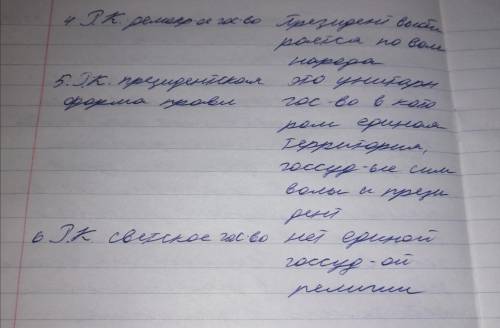 4. РК. демокр-ое гос-во Президент выби
рается по воле
народа
5. РК. президентская это унитарн
форма правл гос-во в кото
ром единая
территория,
госсуд-ые сим
волы и прези
дент
6. РК светское гос-во нет единой
госсуд-ой
религии